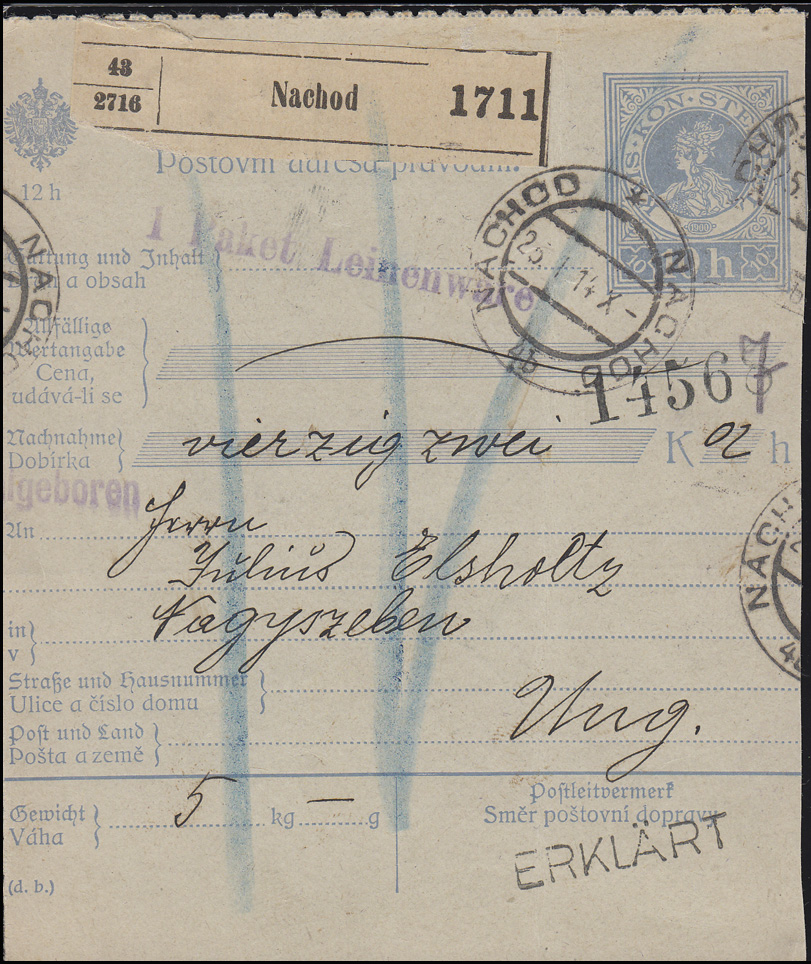 43
2716
Nachod
1711
Poštovní adresa průvodní.
12 h
KAIS·KÖN·STEM
1900
10 h
NÁCHOD * NÁCHOD
25. I 14 X-
1 Paket Leinenware
Gattung und Inhalt
Druh a obsah
Allfällige
Wertangabe
Cena,
udává-li se
14568
7
Nachnahme
Dobírka
vierzig zwei K 02 h
lgeboren
An
Herrn
Julius Elsholtz
in
v
Nagyszeben
Straße und Hausnummer
Ulice a číslo domu
Ung.
Post und Land
Pošta a země
Gewicht
Váha
5 kg — g
Postleitvermerk
Směr poštovní dopravy
ERKLÄRT
(d. b.)